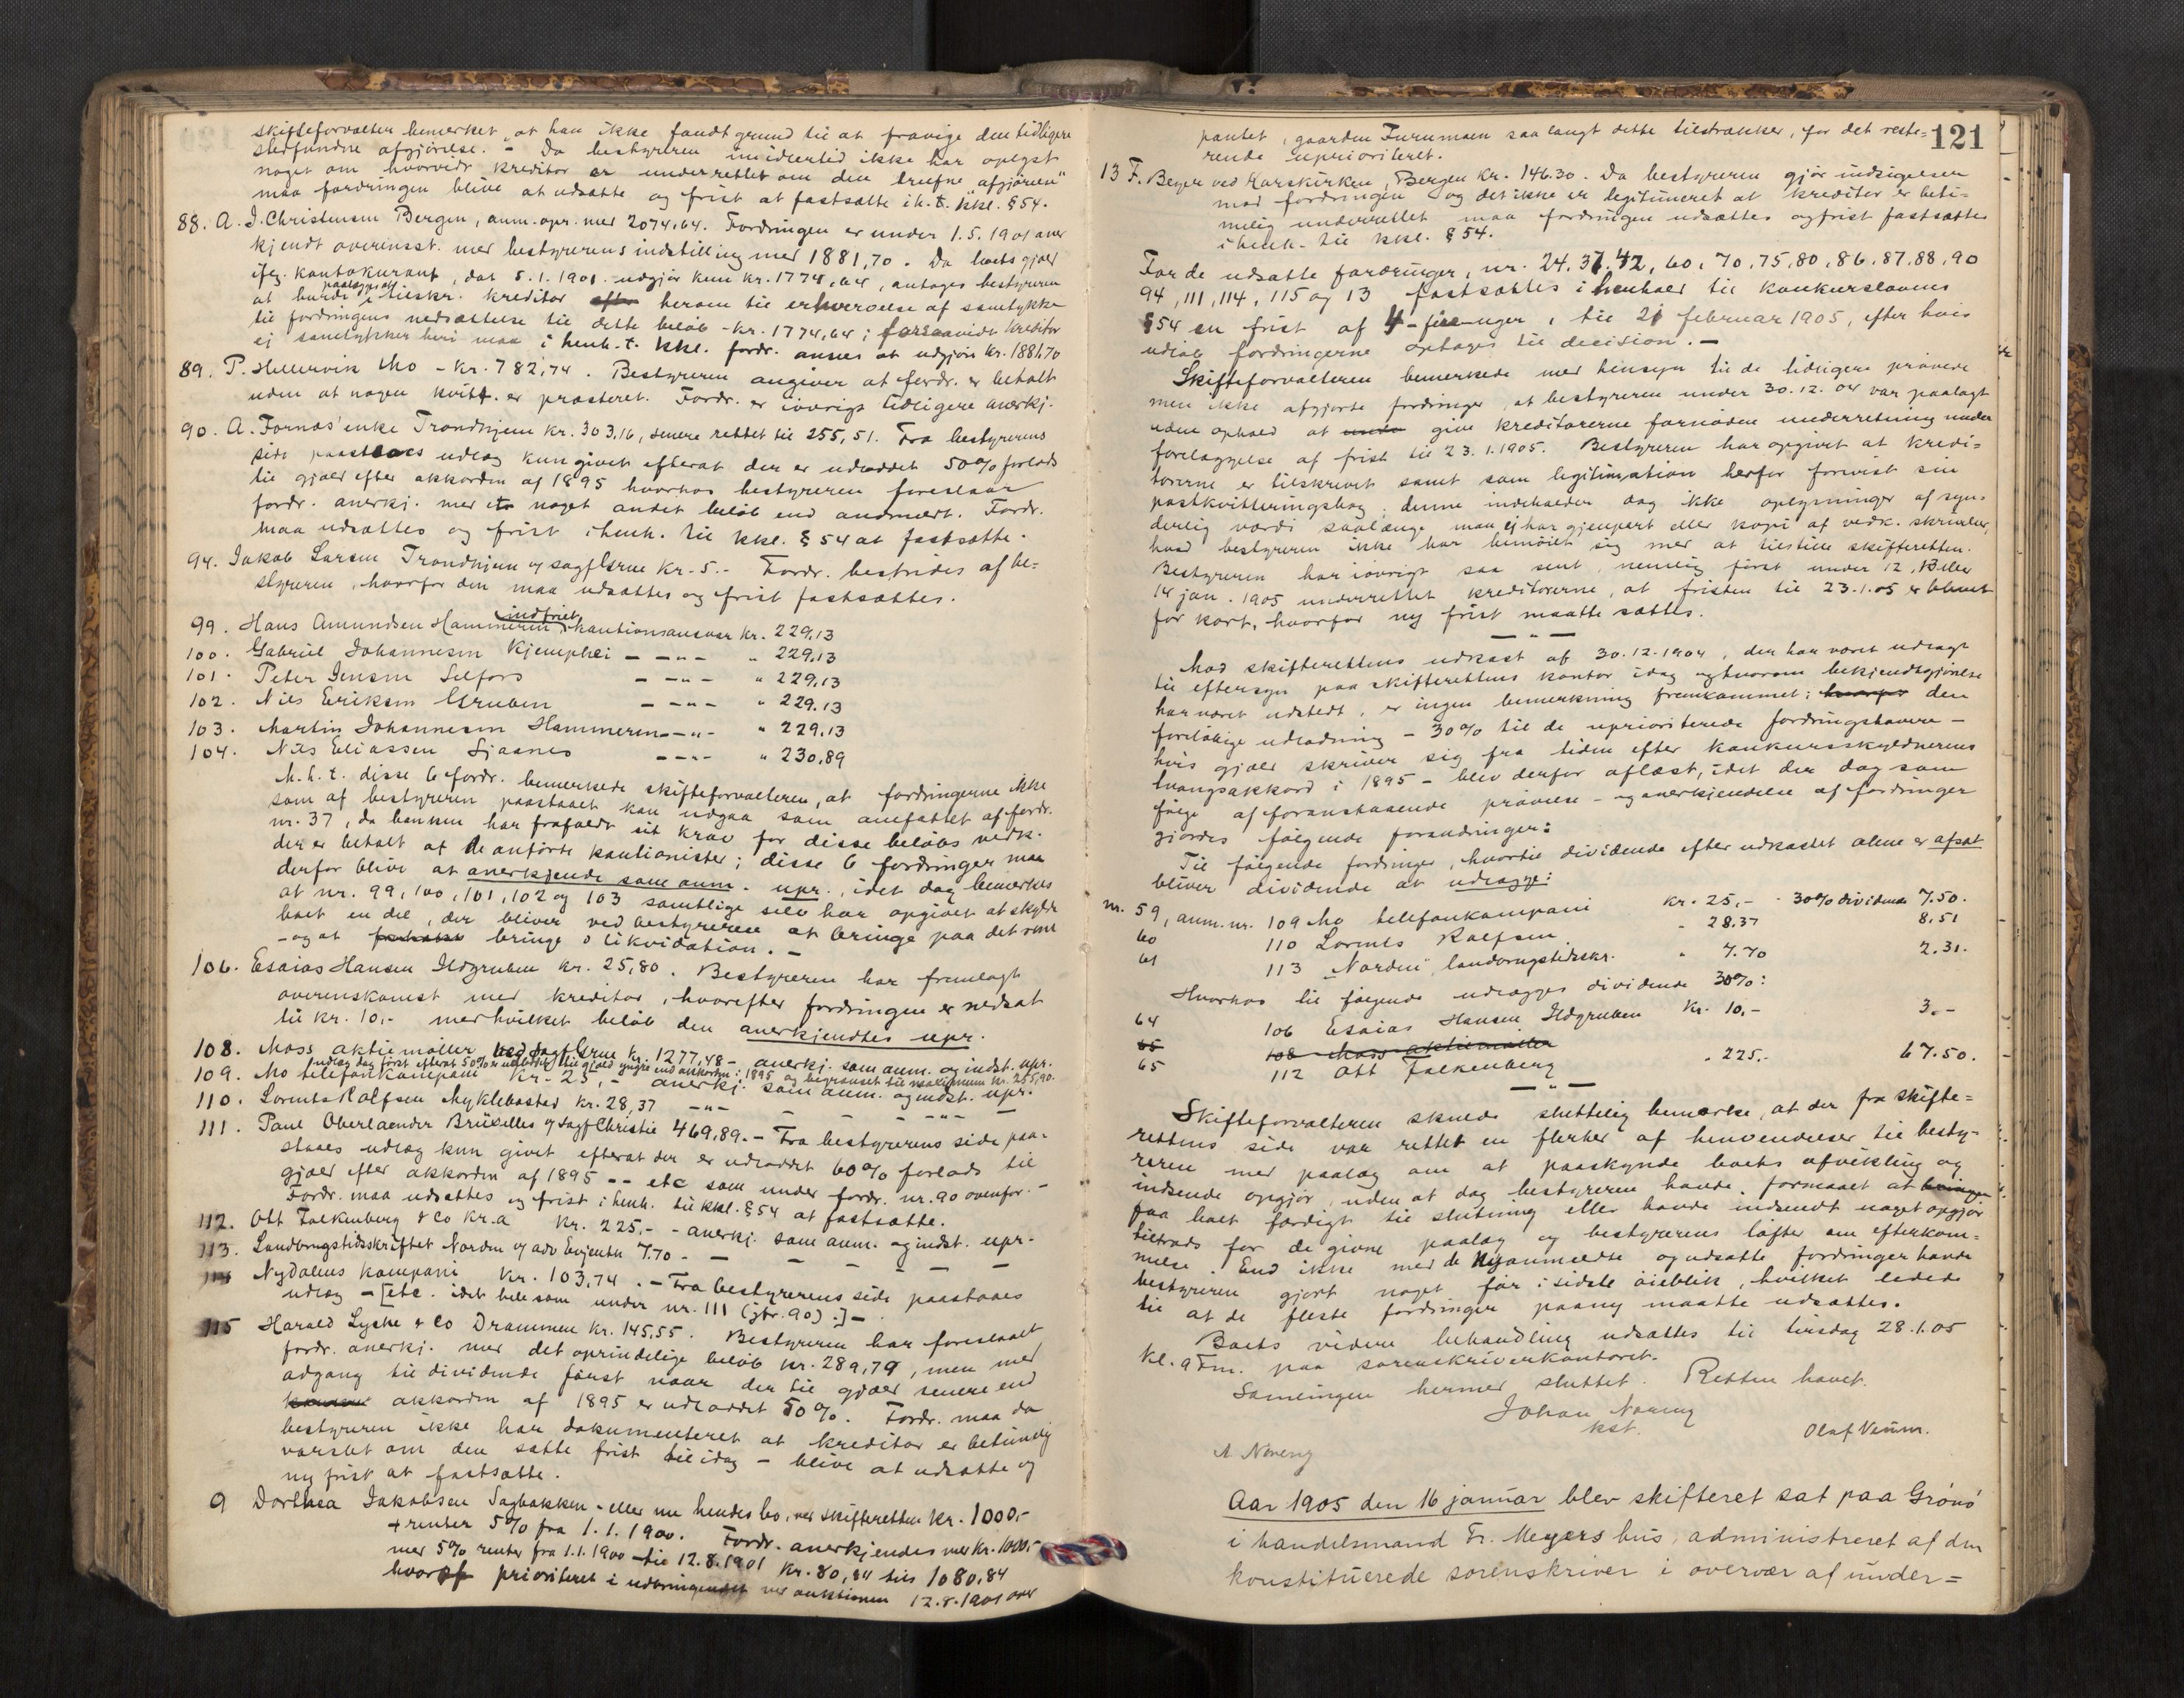 skifteforvalter bemerket, at han ikke fandt grund til at fravige den tidligere
stedfundne afgjörelse. - Da bestyreren imidlertid ikke har oplyst
noget om hvorvidt kreditor er underrettet om den trufne "afgjörelse"
maa fordringen blive at udsætte og frist at fastsætte i h. t. kkl. § 54.
88. A. J. Christensen Bergen, anm. opr. med 2074,64. Fordringen er under 1.5.1901 aner
kjendt overensst. med bestyrerens indstilling med 1881,70. Da boets gjæld
ifg. kontokurant, dat 5.1.1901 udgjör kun kr. 1774,64, antages bestyreren
paalagt at
at burde tilskr. kreditor herom til erhvervelse af samtykke
til fordringens nedsættelse til dette belöb - kr. 1774,64; forsaavidt kreditor
ej samtykker heri maa i henh. t. kkl. fordr. ansees at udgjöre kr. 1881.70
89. P. Hellervik Mo - kr. 782,74. Bestyreren angiver at fordr. er betalt
uden at nogen kvitt. er præsteret. Fordr. er iövrigt tidligere anerkj.
90. A. Fornæs' enke Trondhjem kr. 303,16, senere rettet til 255,51. Fra bestyrerens
side paastaaes udlæg kun givet efterat der er udloddet 50% forlods
til gjæld efter akkorden af 1895 hvorhos bestyreren foreslaar
fordr. anerkj. med et noget andet belöb end anmeldt. Fordr.
maa udsættes og frist i henh. til kkl. § 54 at fastsætte.
94. Jakob Larsen Trondhjem og sagf. Lerne kr. 5.- Fordr. bestrides af be=
styreren, hvorfor den maa udsættes og frist fastsættes.
indfriet
99. Hans Amundsen Hammeren kautionsansvar kr. 229,13
100. Gabriel Johannesen Kjemphei — — „ — „ 229,13
101. Peter Jensen Selfors — — „ — „ 229,13
102. Nils Eriksen Gruben — — „ — „ 229,13
103. Martin Johannesen Hammeren — „ — „ 229,13
104. Nils Eliassen Sjaanes — — „ — „ 230,89
M. h. t. disse 6 fordr. bemerkede skifteforvalteren, at fordringerne ikke
som af bestyreren paastaaet kan udgaa som omfattet af fordr.
nr. 37, da banken har frafaldt sit krav for disse belöbs vedk.
der er betalt af de anförte kautionister; disse 6 fordringer maa
derfor blive at anerkjende som anm. upr., idet dog bemerkes
at nr. 99, 100, 101, 102 og 103 samtlige selv har opgivet at skylde
boet en del, der bliver ved bestyrerens at bringe paa det rene
- og at bringe i likvidation. -
106. Esaias Hansen Ildgruben kr. 25,80. Bestyreren har fremlagt
overenskomst med kreditor, hvorefter fordringen er nedsat
til kr. 10,- med hvilket belöb den anerkjendtes upr.
108. Moss aktiemöller ved sagf. Lerne kr. 1277,48 - anerkj. som anm. og indst. upr.
udlæg dog först efterat 50% er udloddet til gjæld yngre end akkorden i 1895 og begrænset til maximum kr. 255,90.
109. Mo telefonkompani kr. 25,- anerkj. som anm. og indst. upr.
110. Lorents Rolfsen Myklebostad kr. 28,37 — „ — — — — „ — —
111. Paul Oberlaender Brüxelles og sagf. Christie 469,89. - Fra bestyrerens side paa-
staaes udlæg kun givet efterat der er udloddet 60% forlods til
gjæld efter akkorden af 1895 -- etc som under fordr. nr. 90 ovenfor. -
Fordr. maa udsættes og frist i henh. til kkl. § 54 at fastsætte.
112. Ott Falkenberg & Co Kr.a kr. 225,- - anerkj. som anm. og indst. upr.
113. Landbrugstidsskriftet Norden og adv Evjenth 7.70 - — — — — —
114 Nydalens kompani kr. 103,74. - Fra bestyrerens side paastaaes
udlæg - [etc. idet hele som under nr. 111 (jfr. 90).] -
115 Harald Lyche & Co Drammen kr. 145,55. Bestyreren har foreslaaet
fordr. anerkj. med det oprindelige belöb kr. 289,79, men med
adgang til dividende först naar der til gjæld senere end
akkorden af 1895 er udloddet 50%. Fordr. maa da
bestyreren ikke har dokumenteret at kreditor er betimelig
varslet om den satte frist til idag - blive at udsætte og
ny frist at fastsætte.
9 Dorthea Jakobsen Sagbakken - eller nu hendes bo, ved skifteretten kr. 1000.-
+ renter 5% fra 1.1.1900. Fordr. anerkjendes med kr. 1000.-
med 5% renter fra 1.1.1900 - til 12.8.1901 kr. 80,84 tils 1080,84
hvoraf prioriteret i udbringendet ved auktionen 12.8.1901 over
121
pantet, gaarden Furumoen saa langt dette tilstrækker, for det reste=
rende uprioriteret.
13 F. Beyer ved Korskirken, Bergen kr. 146.30. Da bestyreren gjör indsigelser
mod fordringen og det ikke er legitimeret at kreditor er beti=
melig underrettet maa fordringen udsættes og frist fastsættes
i henh. til kkl. § 54.
For de udsatte fordringer, nr. 24, 37, 42, 60, 70, 75, 80, 86, 87, 88, 90
94, 111, 114, 115 og 13 fastsættes i henhold til konkurslovens
§ 54 en frist af 4 - fire - uger, til 21 februar 1905, efter hvis
udlöb fordringerne optages til decision. -
Skifteforvalteren bemerkede med hensyn til de tidligere prövede
men ikke afgjorte fordringer, at bestyreren under 30.12.04 var paalagt
uden ophold at give kreditorerne fornöden underretning under
forelæggelse af frist til 23.1.1905. Bestyreren har opgivet at kredi=
torerne er tilskrevet samt som legitimation herfor forevist sin
postkvitteringsbog; denne indeholder dog ikke oplysninger af syn=
derlig værdi saalænge man ej har gjenpart eller kopi af vedk. skrivelser,
hvad bestyreren ikke har bemöiet sig med at tilstille skifteretten.
Bestyreren har iövrigt saa sent, nemlig först under 12, 13 eller
14 jan. 1905 underrettet kreditorerne, at fristen til 23.1.05 er blevet
for kort, hvorfor ny frist maatte sættes.
— „ —
Mod skifterettens udkast af 30.12.1904, der har været udlagt
til eftersyn paa skifterettens kontor idag og hvorom bekjendtgjörelse
har været udstedt, er ingen bemerkning fremkommet; den
forelöbige udlodning - 30% til de uprioriterede fordringshavere -
hvis gjæld skriver sig fra tiden efter konkursskyldnerens
tvangsakkord i 1895 - blev derfor oplæst, idet der dog som
fölge af foranstaaende prövelse - og anerkjendelse af fordringer
gjordes fölgende forandringer:
Til fölgende fordringer, hvortil dividende efter udkastet alene er afsat
bliver dividende at udlægge:
nr. 59, anm. nr. 109 Mo telefonkompani kr. 25,- 30% dividende 7.50.
60 110 Lorents Rolfsen „ 28.37 8,51
61 113 „Norden", landbrugstidsskr. „ 7.70 2.31.
Hvorhos til fölgende udlægges dividende 30%:
64 106 Esaias Hansen Ildgruben kr. 10,- 3.-
65 108 Moss aktiemöller
65 112 Ott Falkenberg „ 225.- 67.50.
— „ —
Skifteforvalteren skulde sluttelig bemerke, at der fra skifte=
rettens side var rettet en flerhed af henvendelser til besty-
reren med paalæg om at paaskynde boets afvikling og
indsende opgjör, uden at dog bestyreren havde formaaet at
faa boet færdigt til slutning eller havde indsendt noget opgjör
tiltrods for de givne paalæg og bestyrerens löfter om efterkom=
melse. End ikke med de nyanmeldte og udsatte fordringer havde
bestyreren gjort noget för i sidste öieblik, hvilket ledede
til at de fleste fordringer paany maatte udsættes.
Boets videre behandling udsættes til tirsdag 28.1.05
kl. 9 Fm. paa sorenskriverkontoret.
Samlingen hermed sluttet. Retten hævet.
Johan Noreng
kst.
Olaf Vemm.
A Noreng
Aar 1905 den 16 januar blev skifteret sat paa Grönö
i handelsmand Fr. Meyers hus, administreret af den
konstituerede sorenskriver i overvær af under=